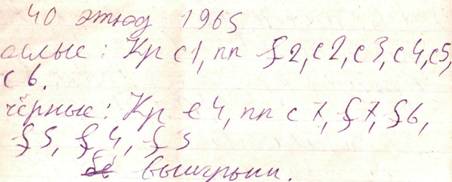 40 этюд 1965
белые: Кр c1, пп f2, c2, c3, c4, c5,
c6.
чёрные: Кр e4, пп c7, f7, f6,
f5, f4, f3
выигрыш.